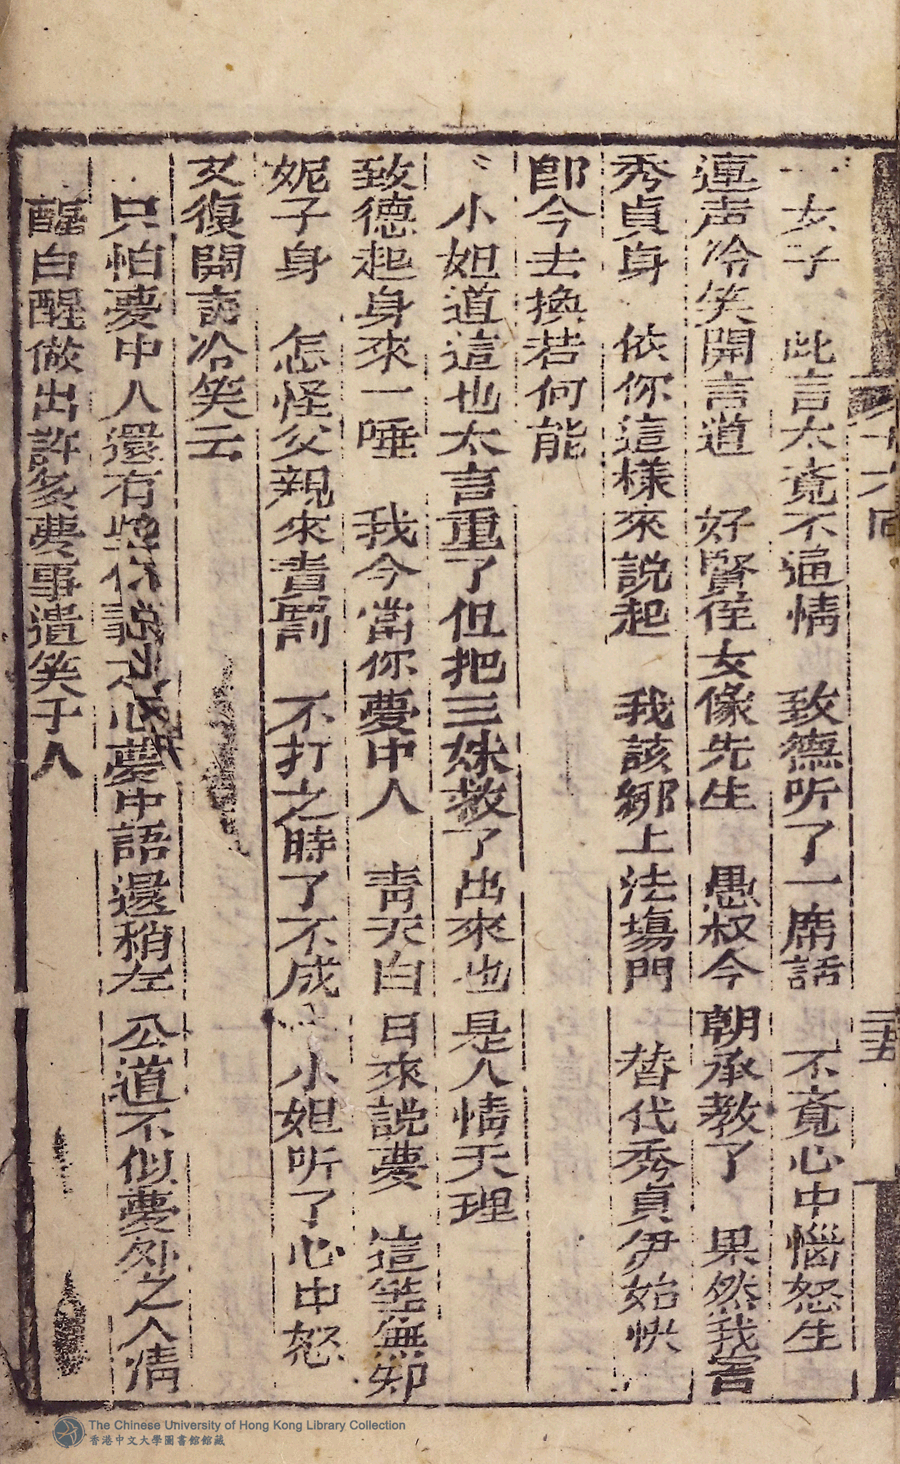 十六回
二十五
一女子　此言太覔不通情　致德听了一席話　不覔心中惱怒生
連声冷笑開言道　好賢侄女像先生　愚叔今朝承教了　果然我害
秀貞身　依你這樣來說起　我該綁上法塲門　替代秀貞伊始快
卽今去換若何能
小姐道這也太言重了但把三妹救了出來也是人情天理
致德起身來一唾　我今當你夢中人　靑天白日來説夢　這等無知
妮子身　怎怪父親來責罰　不打之時了不成　小姐听了心中怒
又復開言冷笑云
只怕夢中人還有心夢中語還稍左公道不似夢外之人情
醒白醒做出許多費事遣笑于人
The Chinese University of Hong Kong Library Collection
香港中文大學圖書館館藏